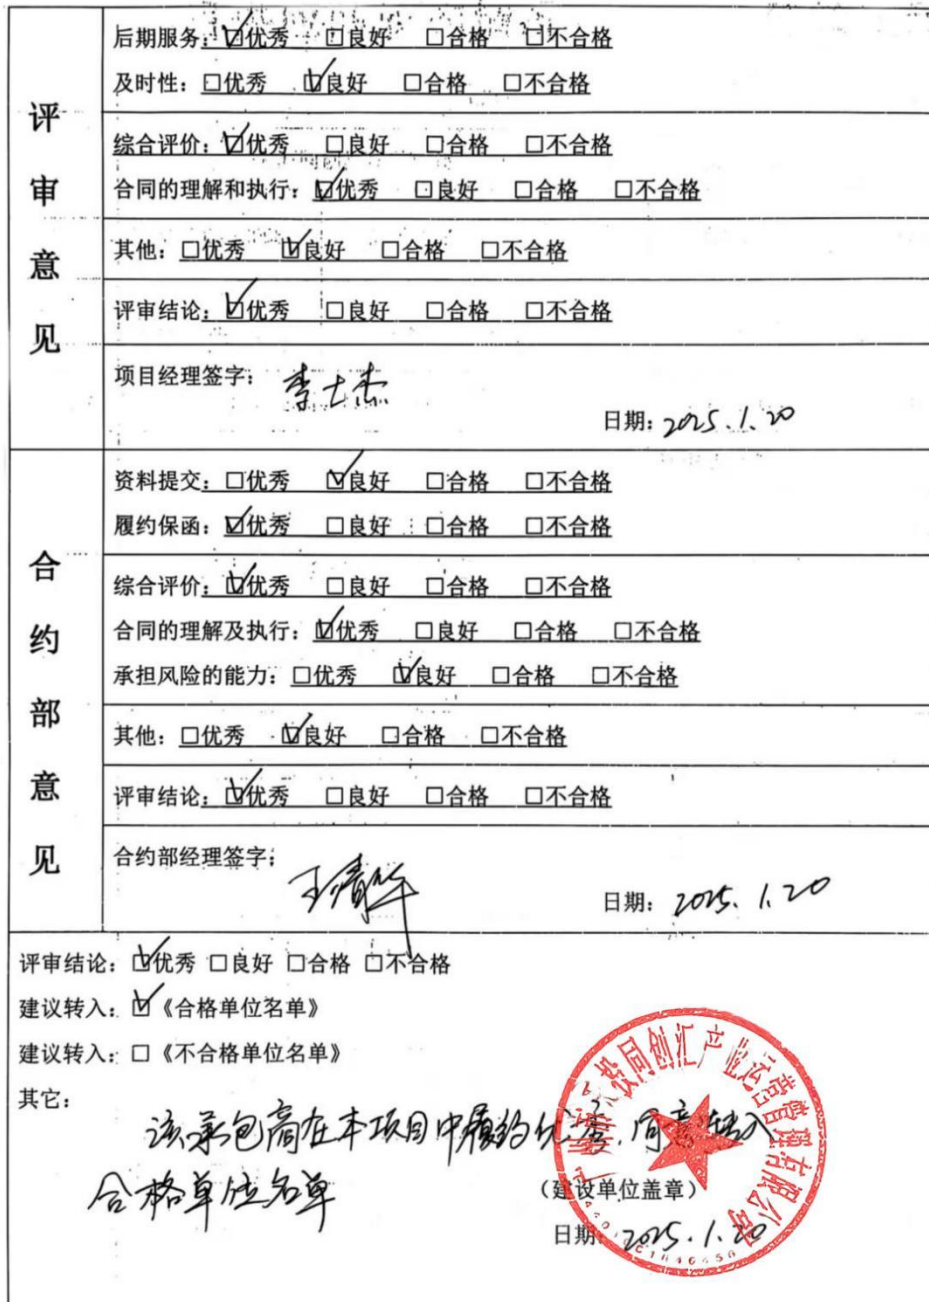 后期服务：☑优秀 □良好 □合格 □不合格
及时性：□优秀 ☑良好 □合格 □不合格
评审意见
综合评价：☑优秀 □良好 □合格 □不合格
合同的理解和执行：☑优秀 □良好 □合格 □不合格
其他：□优秀 ☑良好 □合格 □不合格
评审结论：☑优秀 □良好 □合格 □不合格
项目经理签字：李士杰
日期：2025.1.20
资料提交：□优秀 ☑良好 □合格 □不合格
履约保函：☑优秀 □良好 □合格 □不合格
合约部意见
综合评价：☑优秀 □良好 □合格 □不合格
合同的理解及执行：☑优秀 □良好 □合格 □不合格
承担风险的能力：□优秀 ☑良好 □合格 □不合格
其他：□优秀 ☑良好 □合格 □不合格
评审结论：☑优秀 □良好 □合格 □不合格
合约部经理签字：
日期：2025.1.20
评审结论：☑优秀 □良好 □合格 □不合格
建议转入：☑《合格单位名单》
建议转入：□《不合格单位名单》
其它：
该承包商在本项目中履约优秀，同意转入
合格单位名单
投同创汇产业运营管理有限公司
（建设单位盖章）
日期：2025.1.20